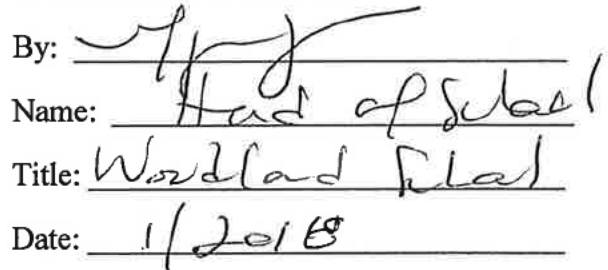 By:
Name: Head of School
Title: Woodland School
Date: 1/2018